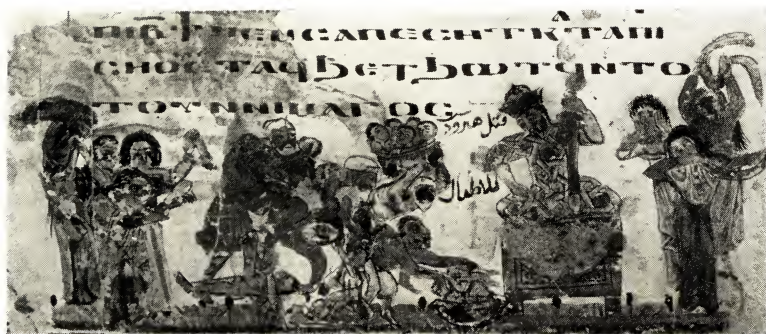 ⲡⲓⲃ̄ϯⲛⲉⲙⲥⲁⲡⲉⲥⲏⲧⲕⲁⲧⲁⲡⲓ
ⲥⲏⲟⲩⲉⲧⲁϥϧⲉⲧϧⲱⲧϥⲛⲧⲟ
ⲧⲟⲩⲛⲛⲓⲙⲁⲅⲟⲥ
قتل هيرودس
للاطفال